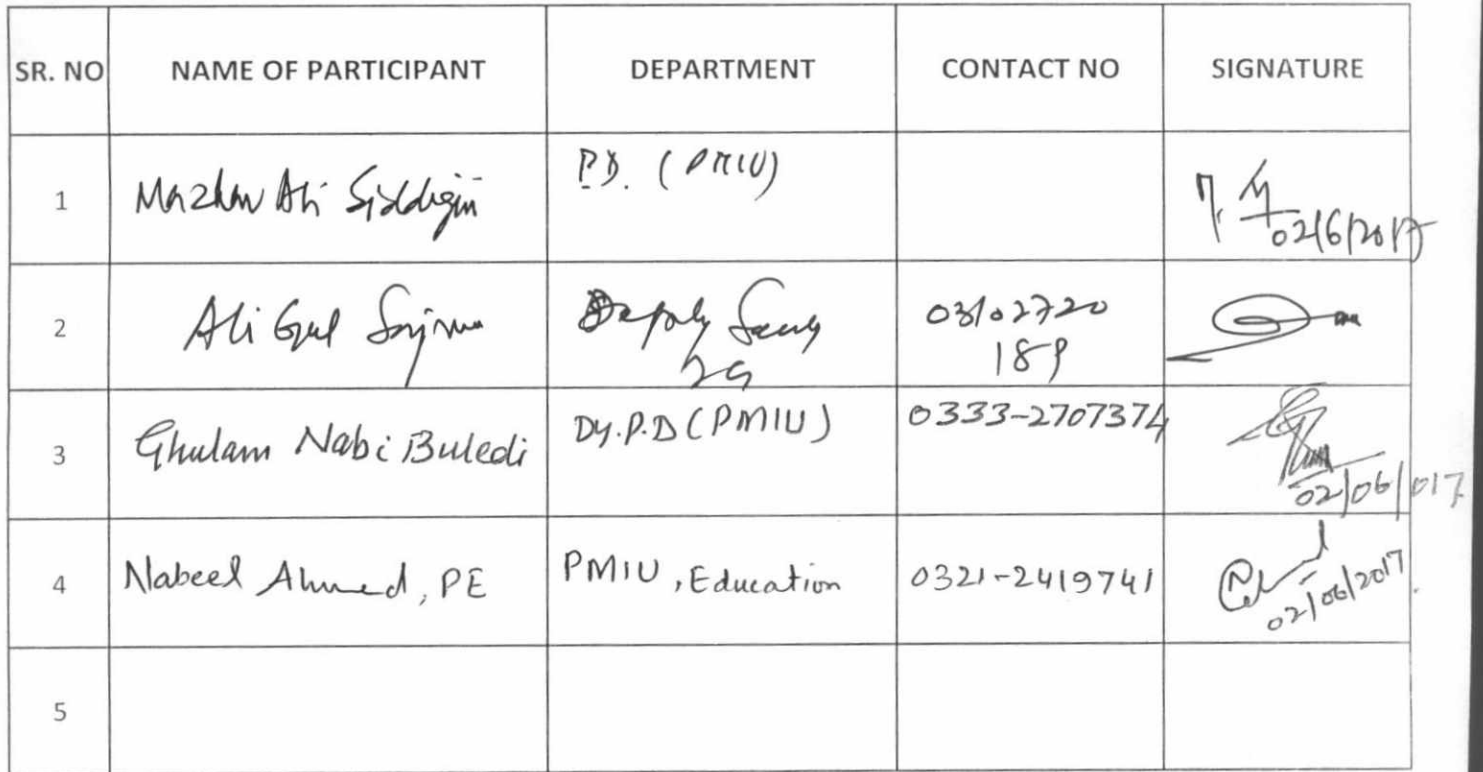 SR. NO NAME OF PARTICIPANT DEPARTMENT CONTACT NO SIGNATURE
1 Mazhar Ali Siddiqui P.D. (PMIU) 02/6/2017
2 Ali Gul 03102720
189
3 Ghulam Nabi Buledi Dy.P.D (PMIU) 0333-2707374 02/06/017
4 Nabeel Ahmed, PE PMIU, Education 0321-2419741 02/06/2017
5